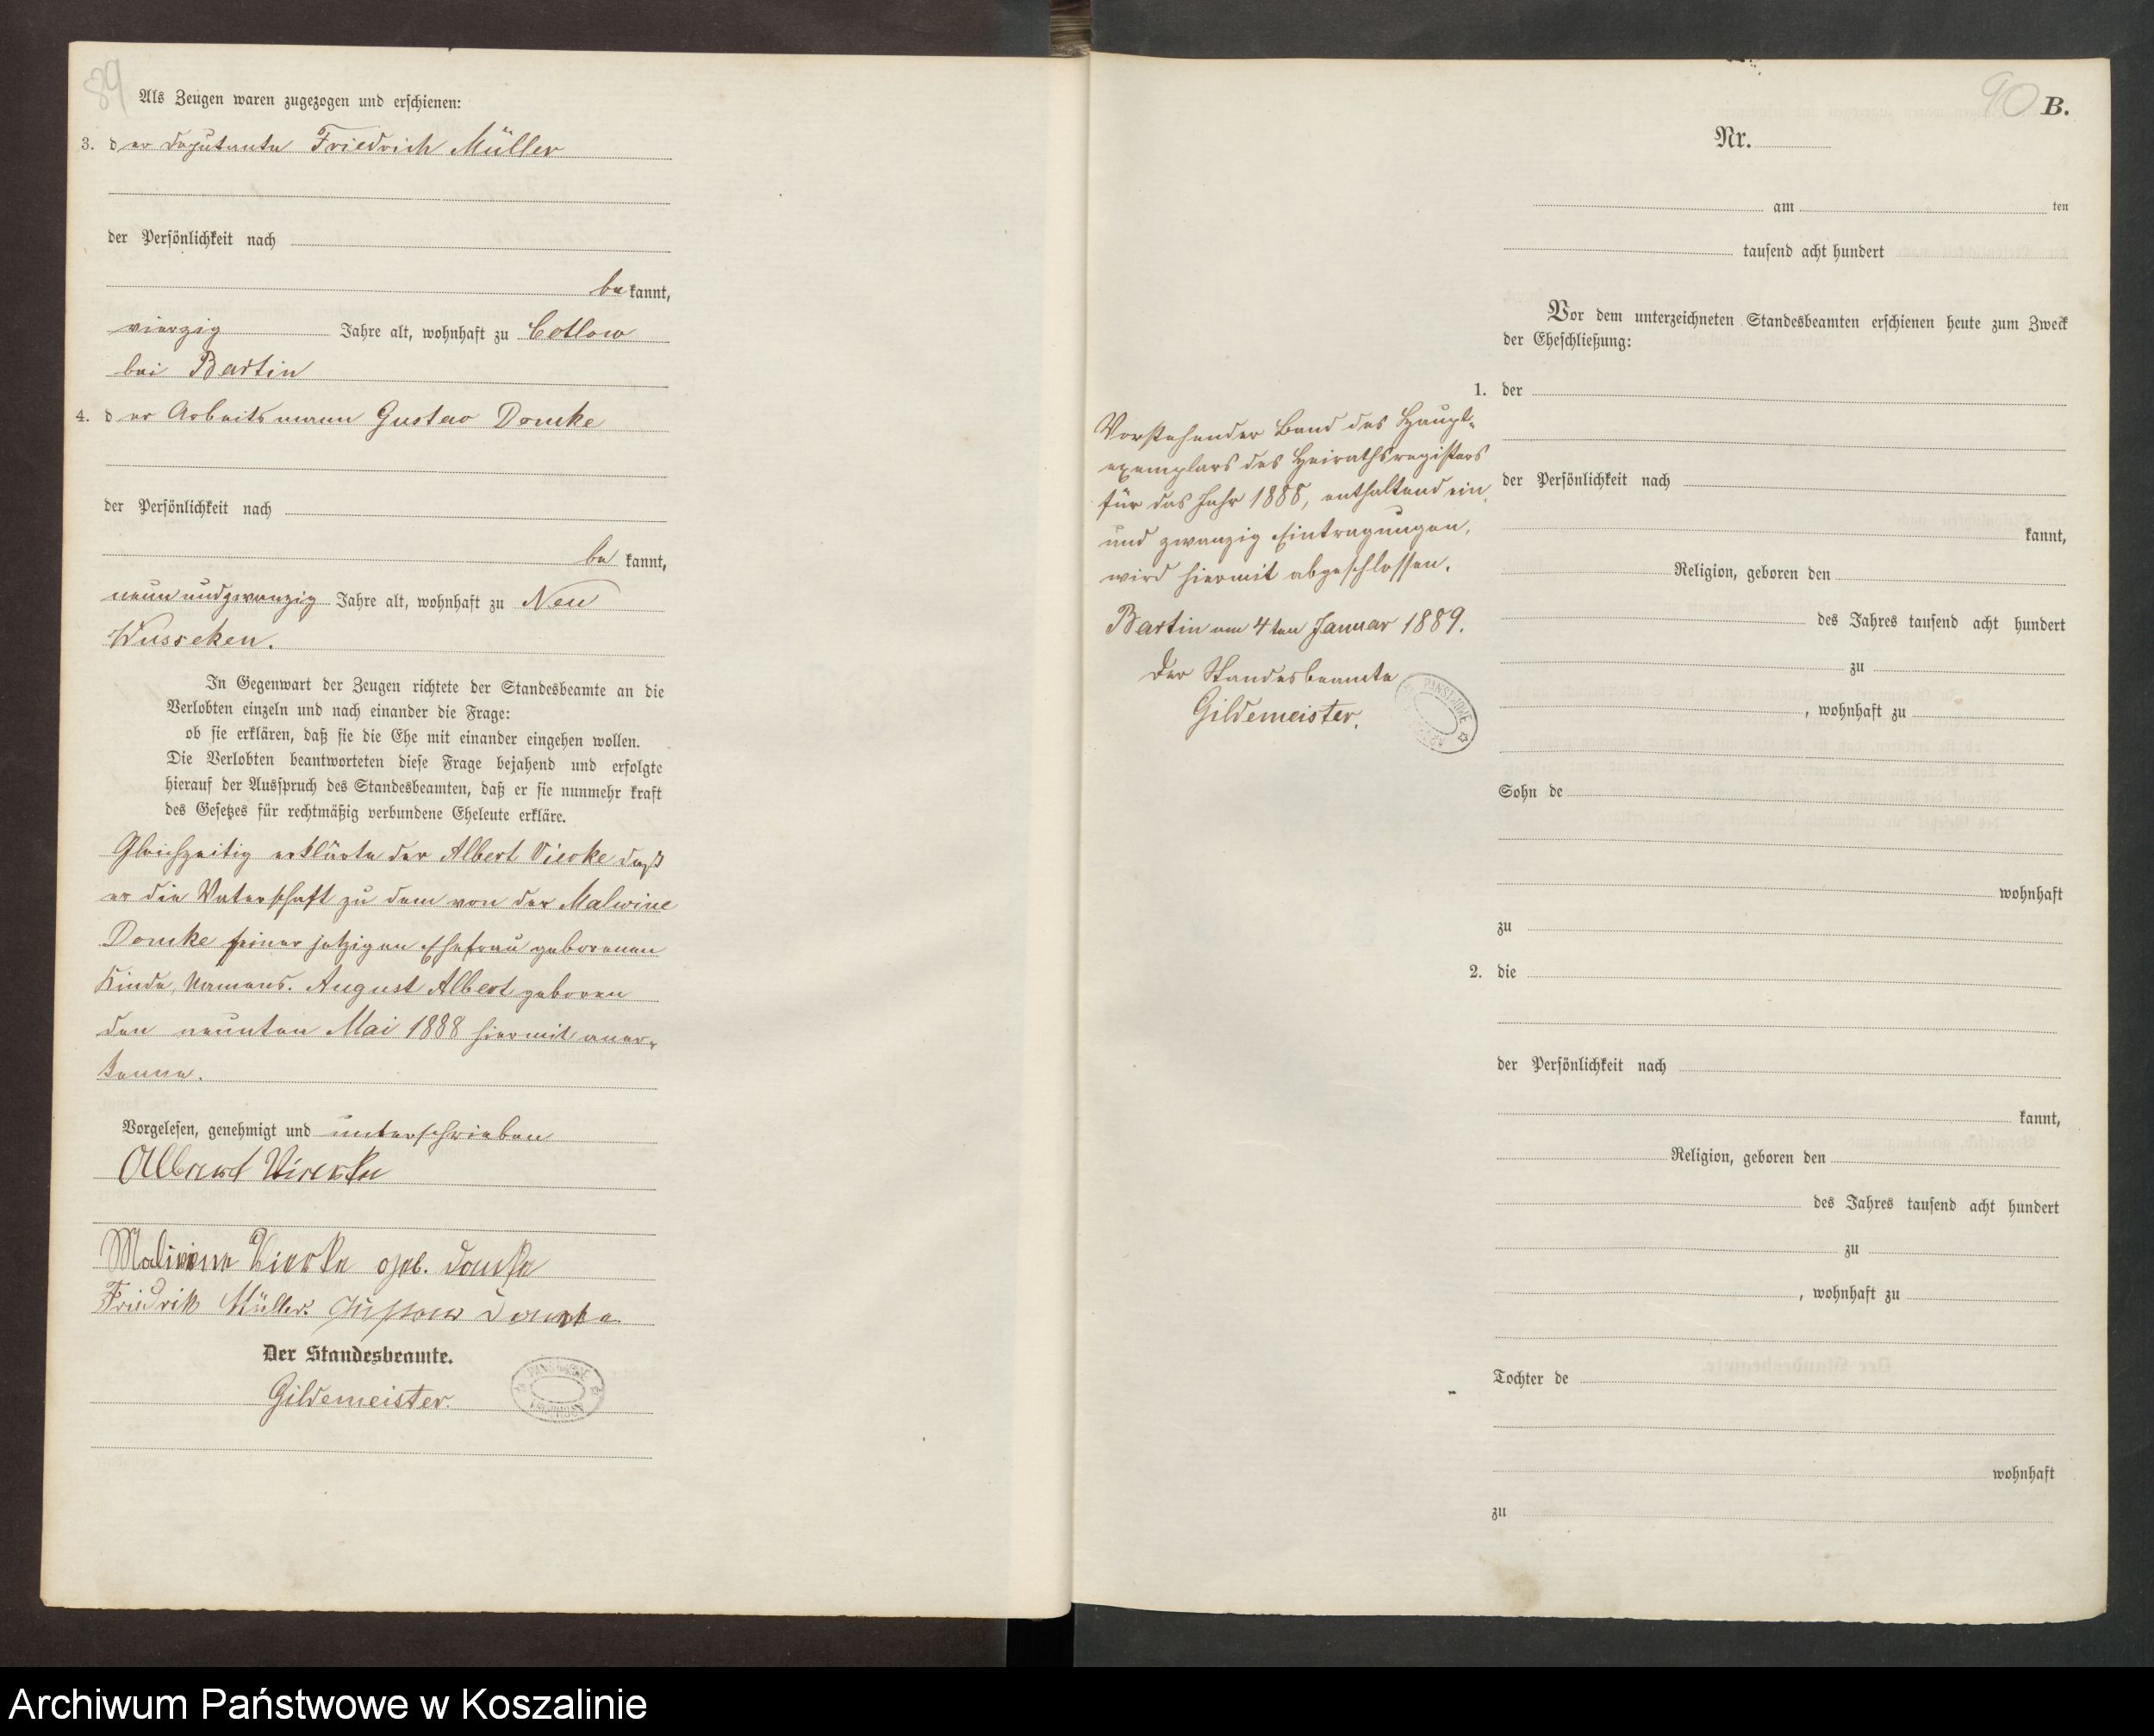 89
Als Zeugen waren zugezogen und erschienen:
3. der Deputante Friedrich Müller
der Persönlichkeit nach
be kannt,
vierzig Jahre alt, wohnhaft zu Cotlow
bei Bartin
4. der Arbeitsmann Gustav Domke
der Persönlichkeit nach
be kannt,
neun und zwanzig Jahre alt, wohnhaft zu Neu
Wusseken.
In Gegenwart der Zeugen richtete der Standesbeamte an die
Verlobten einzeln und nach einander die Frage:
ob sie erklären, daß sie die Ehe mit einander eingehen wollen.
Die Verlobten beantworteten diese Frage bejahend und erfolgte
hierauf der Ausspruch des Standesbeamten, daß er sie nunmehr kraft
des Gesetzes für rechtmäßig verbundene Eheleute erkläre.
Gleichzeitig erklärte der Albert Vierke daß
er die Vaterschaft zu dem von der Malwine
Domke seiner jetzigen Ehefrau geborenen
Kinde, Namens. August Albert geboren
den neunten Mai 1888 hiermit aner-
kenne.
Vorgelesen, genehmigt und unterschrieben
Albert Vierke
Malwine Vierke geb. Domke
Friedrik Müller. Gustaw Domke
Der Standesbeamte.
Gildemeister.
90 B.
Nr.
am ten
tausend acht hundert
Vor dem unterzeichneten Standesbeamten erschienen heute zum Zweck
der Eheschließung:
1. der
der Persönlichkeit nach
kannt,
Religion, geboren den
des Jahres tausend acht hundert
zu
, wohnhaft zu
Sohn de
wohnhaft
zu
2. die
der Persönlichkeit nach
kannt,
Religion, geboren den
des Jahres tausend acht hundert
zu
, wohnhaft zu
Tochter de
wohnhaft
zu
Vorstehender Band des Haupt-
exemplars des Heirathsregisters
für das Jahr 1888, enthaltend ein
und zwanzig Eintragungen,
wird hiermit abgeschlossen.
Bartin am 4ten Januar 1889.
Der Standesbeamte
Gildemeister.
Archiwum Państwowe w Koszalinie